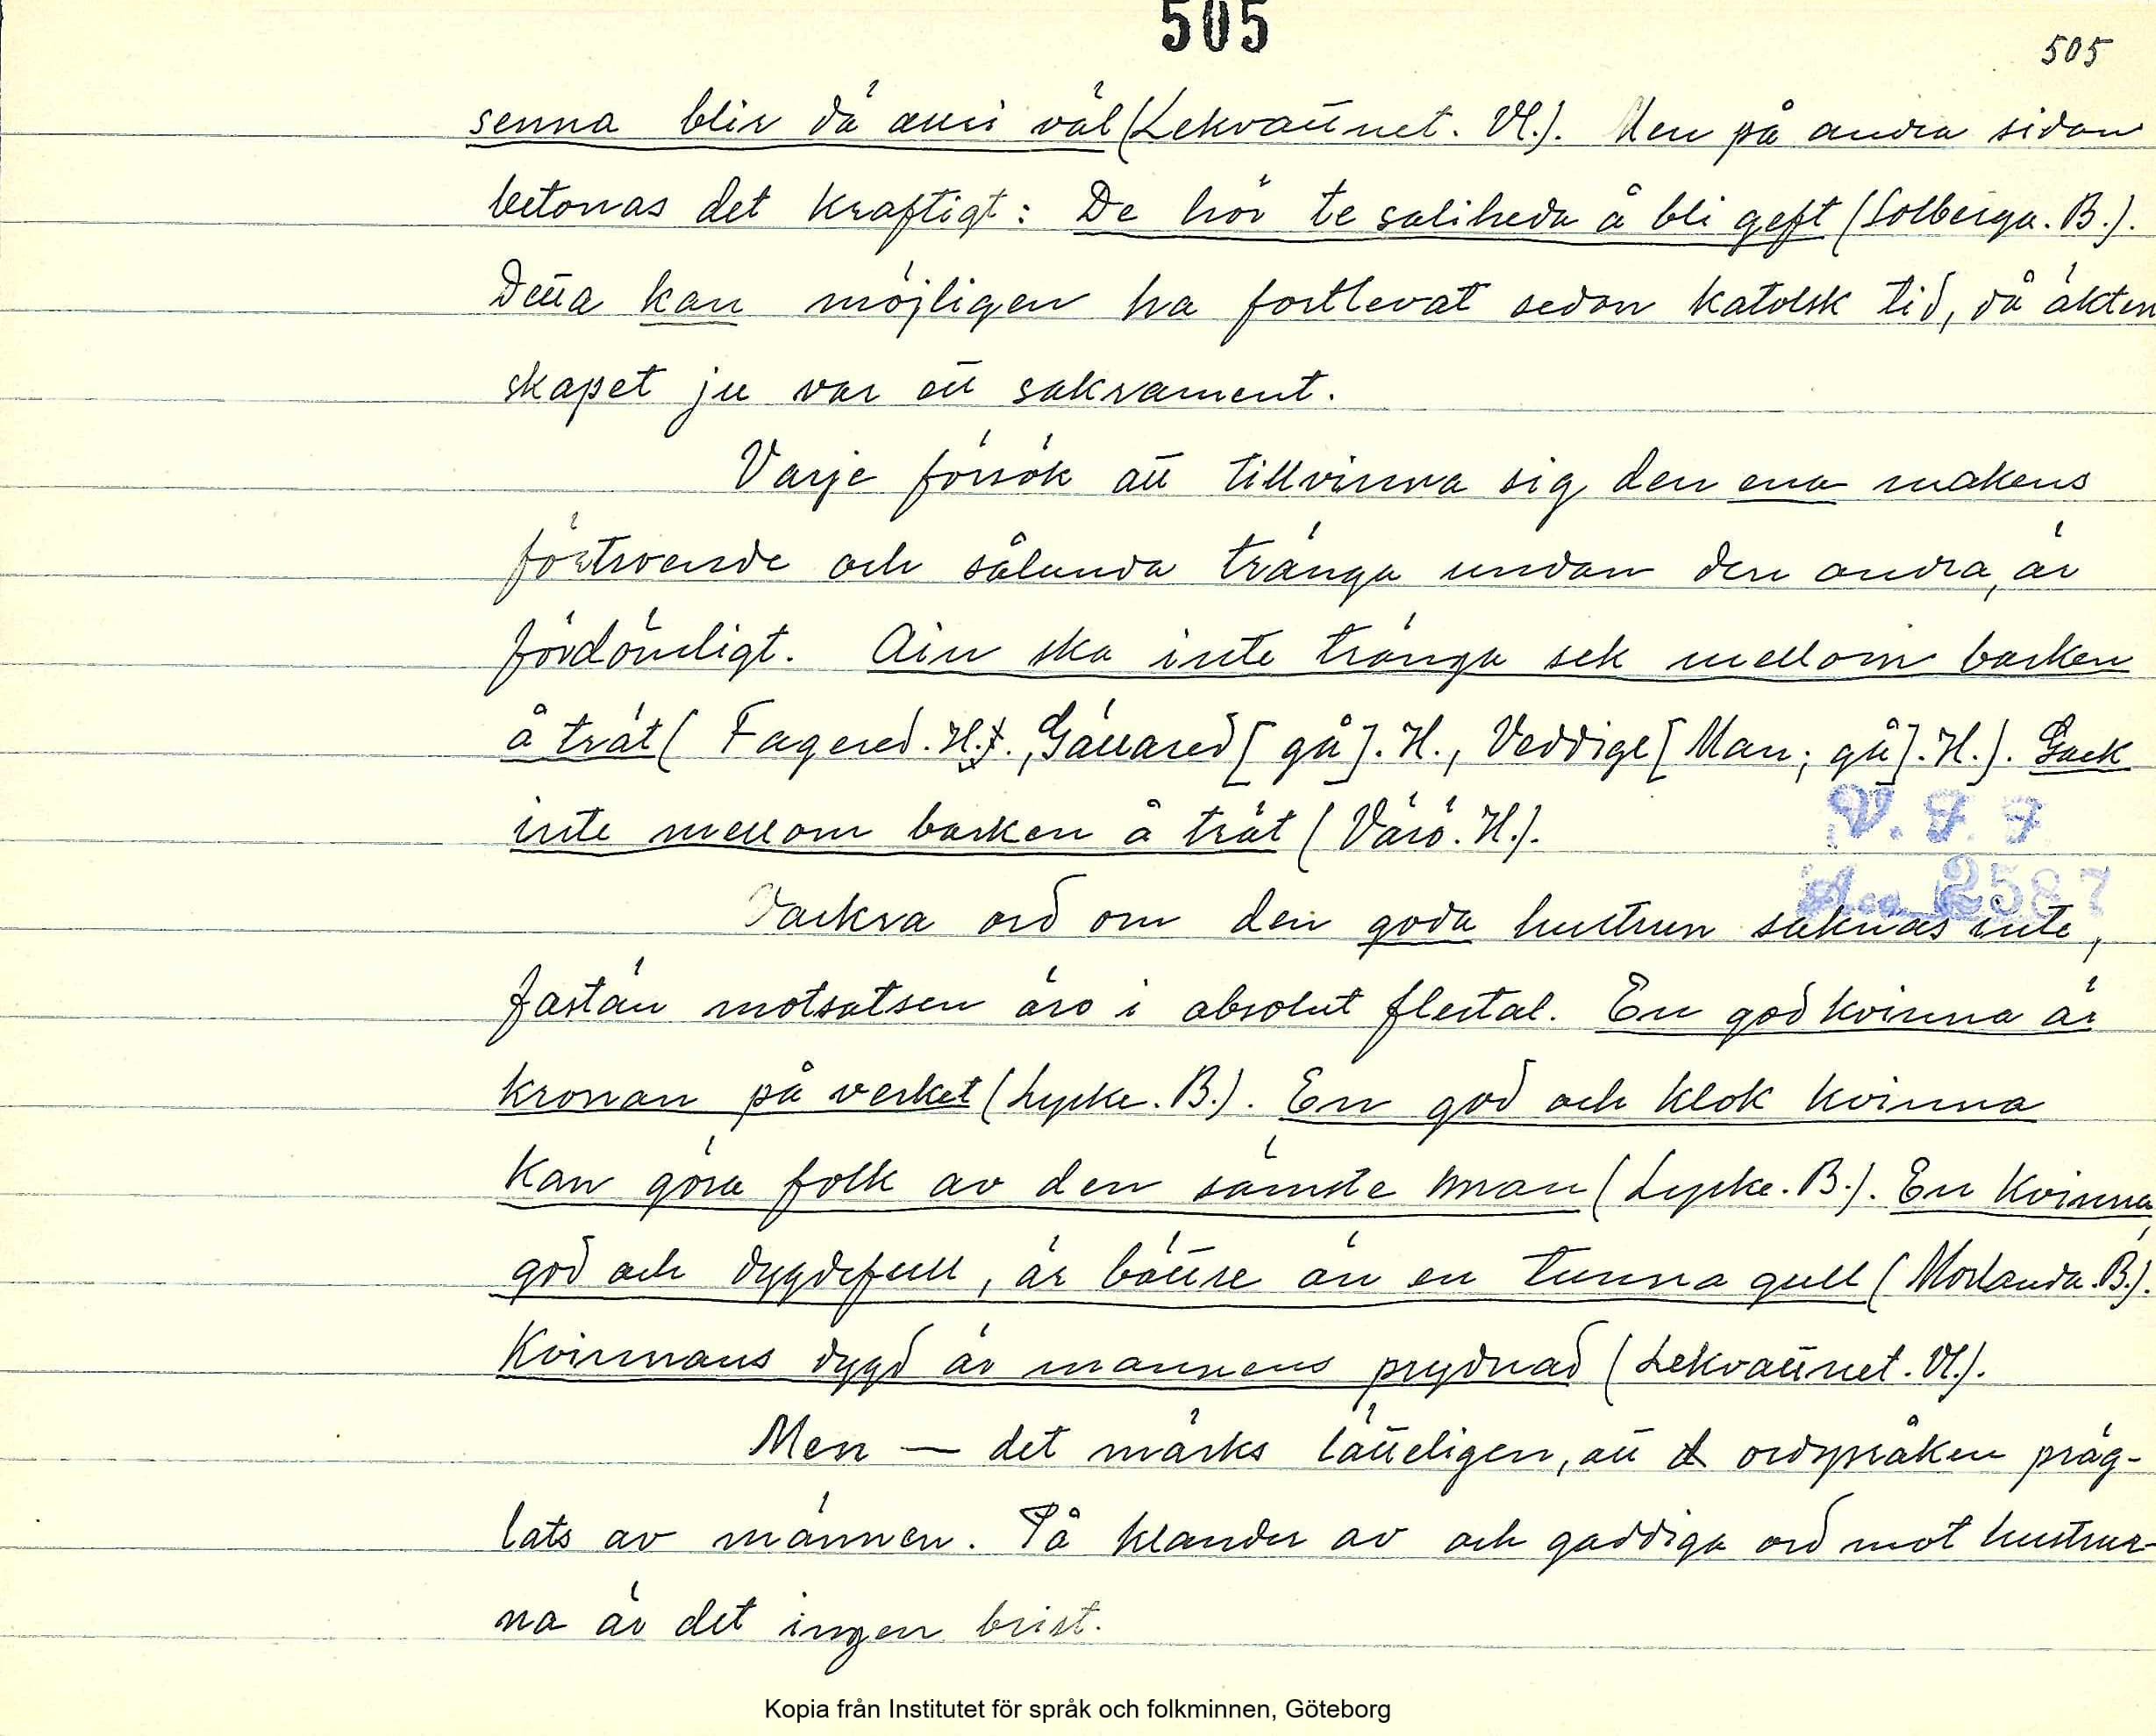 505
505
senna blir dä änsi väl (Lekvattnet. Vl.). Men på andra sidan
betonas det kraftigt: De hör te saliheda å bli geft (Solberga. B.).
Detta kan möjligen ha fortlevat sedan katolsk tid, då äkten
skapet ju var ett sakrament.
Varje försök att tillvinna sig den ena makens
förtroende och sålunda tränga undan den andra, är
fördömligt. Ain ska inte tränga sek mellom barken
å trät ( Fagered. H., Gällared [ gå]. H., Veddige [ Man; gå]. H.). Gack
inte mellom barken å trät ( Värö. H.).
V. F. F
Acc. 2587
Vackra ord om den goda hustrun saknas inte,
fastän motsatsen äro i absolut flertal. En god kvinna är
kronan på verket (Lycke. B.). En god och klok kvinna
kan göra folk av den sämste man (Lycke. B.). En kvinna,
god och dygdefull, är bättre än en tunna gull (Morlanda. B.).
Kvinnans dygd är mannens prydnad (Lekvattnet. Vl.).
Men — det märks lätteligen, att ordspråken präg-
lats av männen. På klander av och gaddiga ord mot hustrur-
na är det ingen brist.
Kopia från Institutet för språk och folkminnen, Göteborg